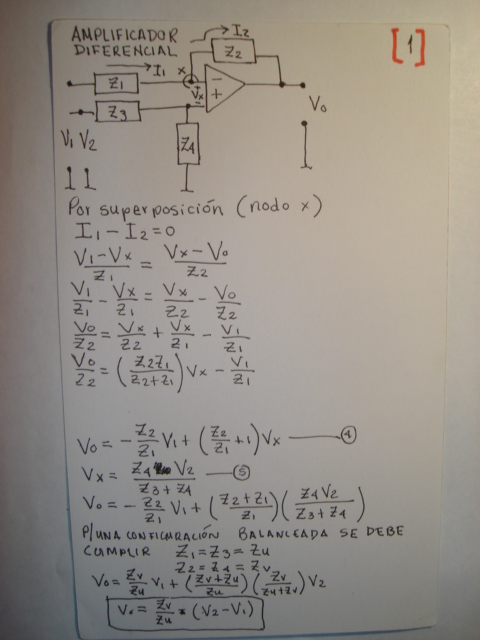 AMPLIFICADOR
DIFERENCIAL
[1]
I2
Z2
I1
x
Z1
Vx
+
-
-
+
Z3
Z4
Vo
V1 V2
Por superposición (nodo x)
I1 - I2 = 0
(V1 - Vx)/Z1 = (Vx - Vo)/Z2
V1/Z1 - Vx/Z1 = Vx/Z2 - Vo/Z2
Vo/Z2 = Vx/Z2 + Vx/Z1 - V1/Z1
Vo/Z2 = (Z2Z1/(Z2+Z1)) Vx - V1/Z1
Vo = - Z2/Z1 V1 + (Z2/Z1 + 1) Vx —— 4
Vx = Z4 V2/(Z3 + Z4) —— 5
Vo = - Z2/Z1 V1 + ((Z2 + Z1)/Z1) (Z4 V2/(Z3 + Z4))
P/UNA CONFIGURACIÓN BALANCEADA SE DEBE
CUMPLIR Z1 = Z3 = Zu
Z2 = Z4 = Zv
Vo = Zv/Zu V1 + ((Zv + Zu)/Zu) (Zv/(Zu + Zv)) V2
Vo = Zv/Zu * (V2 - V1)